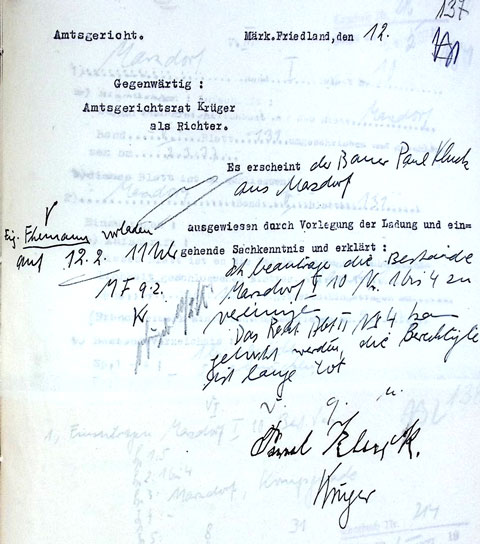 137
Amtsgericht.
Märk.Friedland,den 12.
Gegenwärtig :
Amtsgerichtsrat Krüger
als Richter.
Es erscheint der Bauer Paul Kluck
aus Marzdorf
ausgewiesen durch Vorlegung der Ladung und ein-
gehende Sachkenntnis und erklärt :
Ehemann vorladen
auf 12.2. 11 Uhr
M F 9.2.
Kr.
Ich beantrage die Bestände
Marzdorf I 10 № 1 bis 4 zu
vereinigen
Das Recht Abt II № 4 kann
gelöscht werden, die Berechtigte
ist lange tot
v. g. u.
Paul Kluck.
Krüger